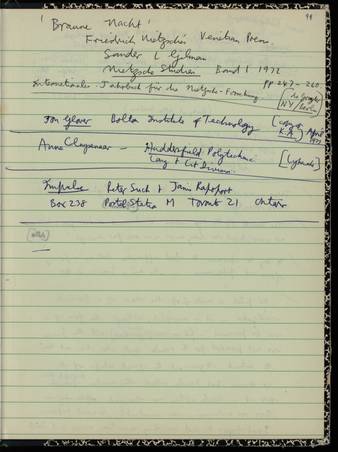 99
'Braune Nacht'
Friedrich Nietzsche's Venetian Poem
Sander L Gilman
Nietzsche Studien Band 1 1972
pp 247 - 260
Internationales Jahrbuch für die Nietzsche-Forschung
NY / Berlin
Jon Glover Bolton Institute of Technology [copy of K.A.]
Anne Cluysenaar — Huddersfield Polytechnic
Lang & Lit Division
Impulse Peter Such & Janis Rapoport
Box 238 Postal Station M Toronto 21 Ontario